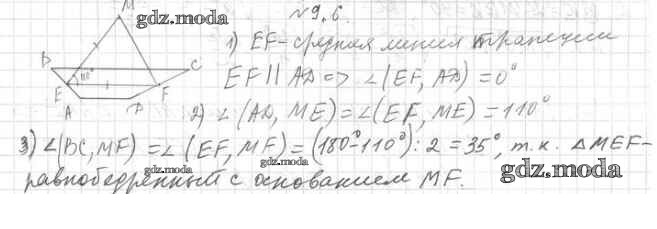 № 9.6.
M
gdz.moda
1) EF-средняя линия трапеции
B
C
110°
EF || AD => ∠(EF, AD) = 0°
E
F
A
D
gdz.moda
2) ∠(AD, ME) = ∠(EF, ME) = 110°
3) ∠(BC, MF) = ∠(EF, MF) = (180°-110°) : 2 = 35°, т.к. ΔMEF-
gdz.moda
gdz.moda
gdz.moda
равнобедренный с основанием MF.